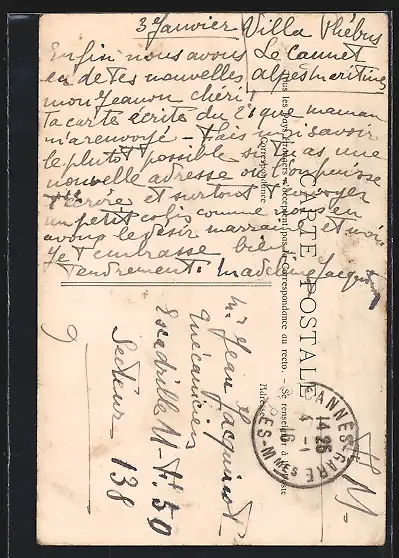 3 Janvier Villa Phébus
Le Cannet
alpes maritimes
Enfin nous avons
eu de tes nouvelles
mon Jeanon chéri!
ta carte écrite du 21 que maman
m'a renvoyé - Fais moi savoir
le plutot possible si tu as une
nouvelle adresse ou l'on puisse
t'écrire et surtout t'envoyer
un petit colis comme nous en
avons le désir marraine et moi
Je t'embrasse bien
Tendrement. Madeleine Jacquinot
CARTE POSTALE
Tous les pays étrangers n'acceptent pas la Correspondance au recto. - Se renseigner à la Poste
Correspondance
Adresse
Mr Jean Jacquinot
Mécanicien
Escadrille M-F. 50
Secteur 138
F M
CANNES-GARE
14 25
4 - 1
ALPES-MMES